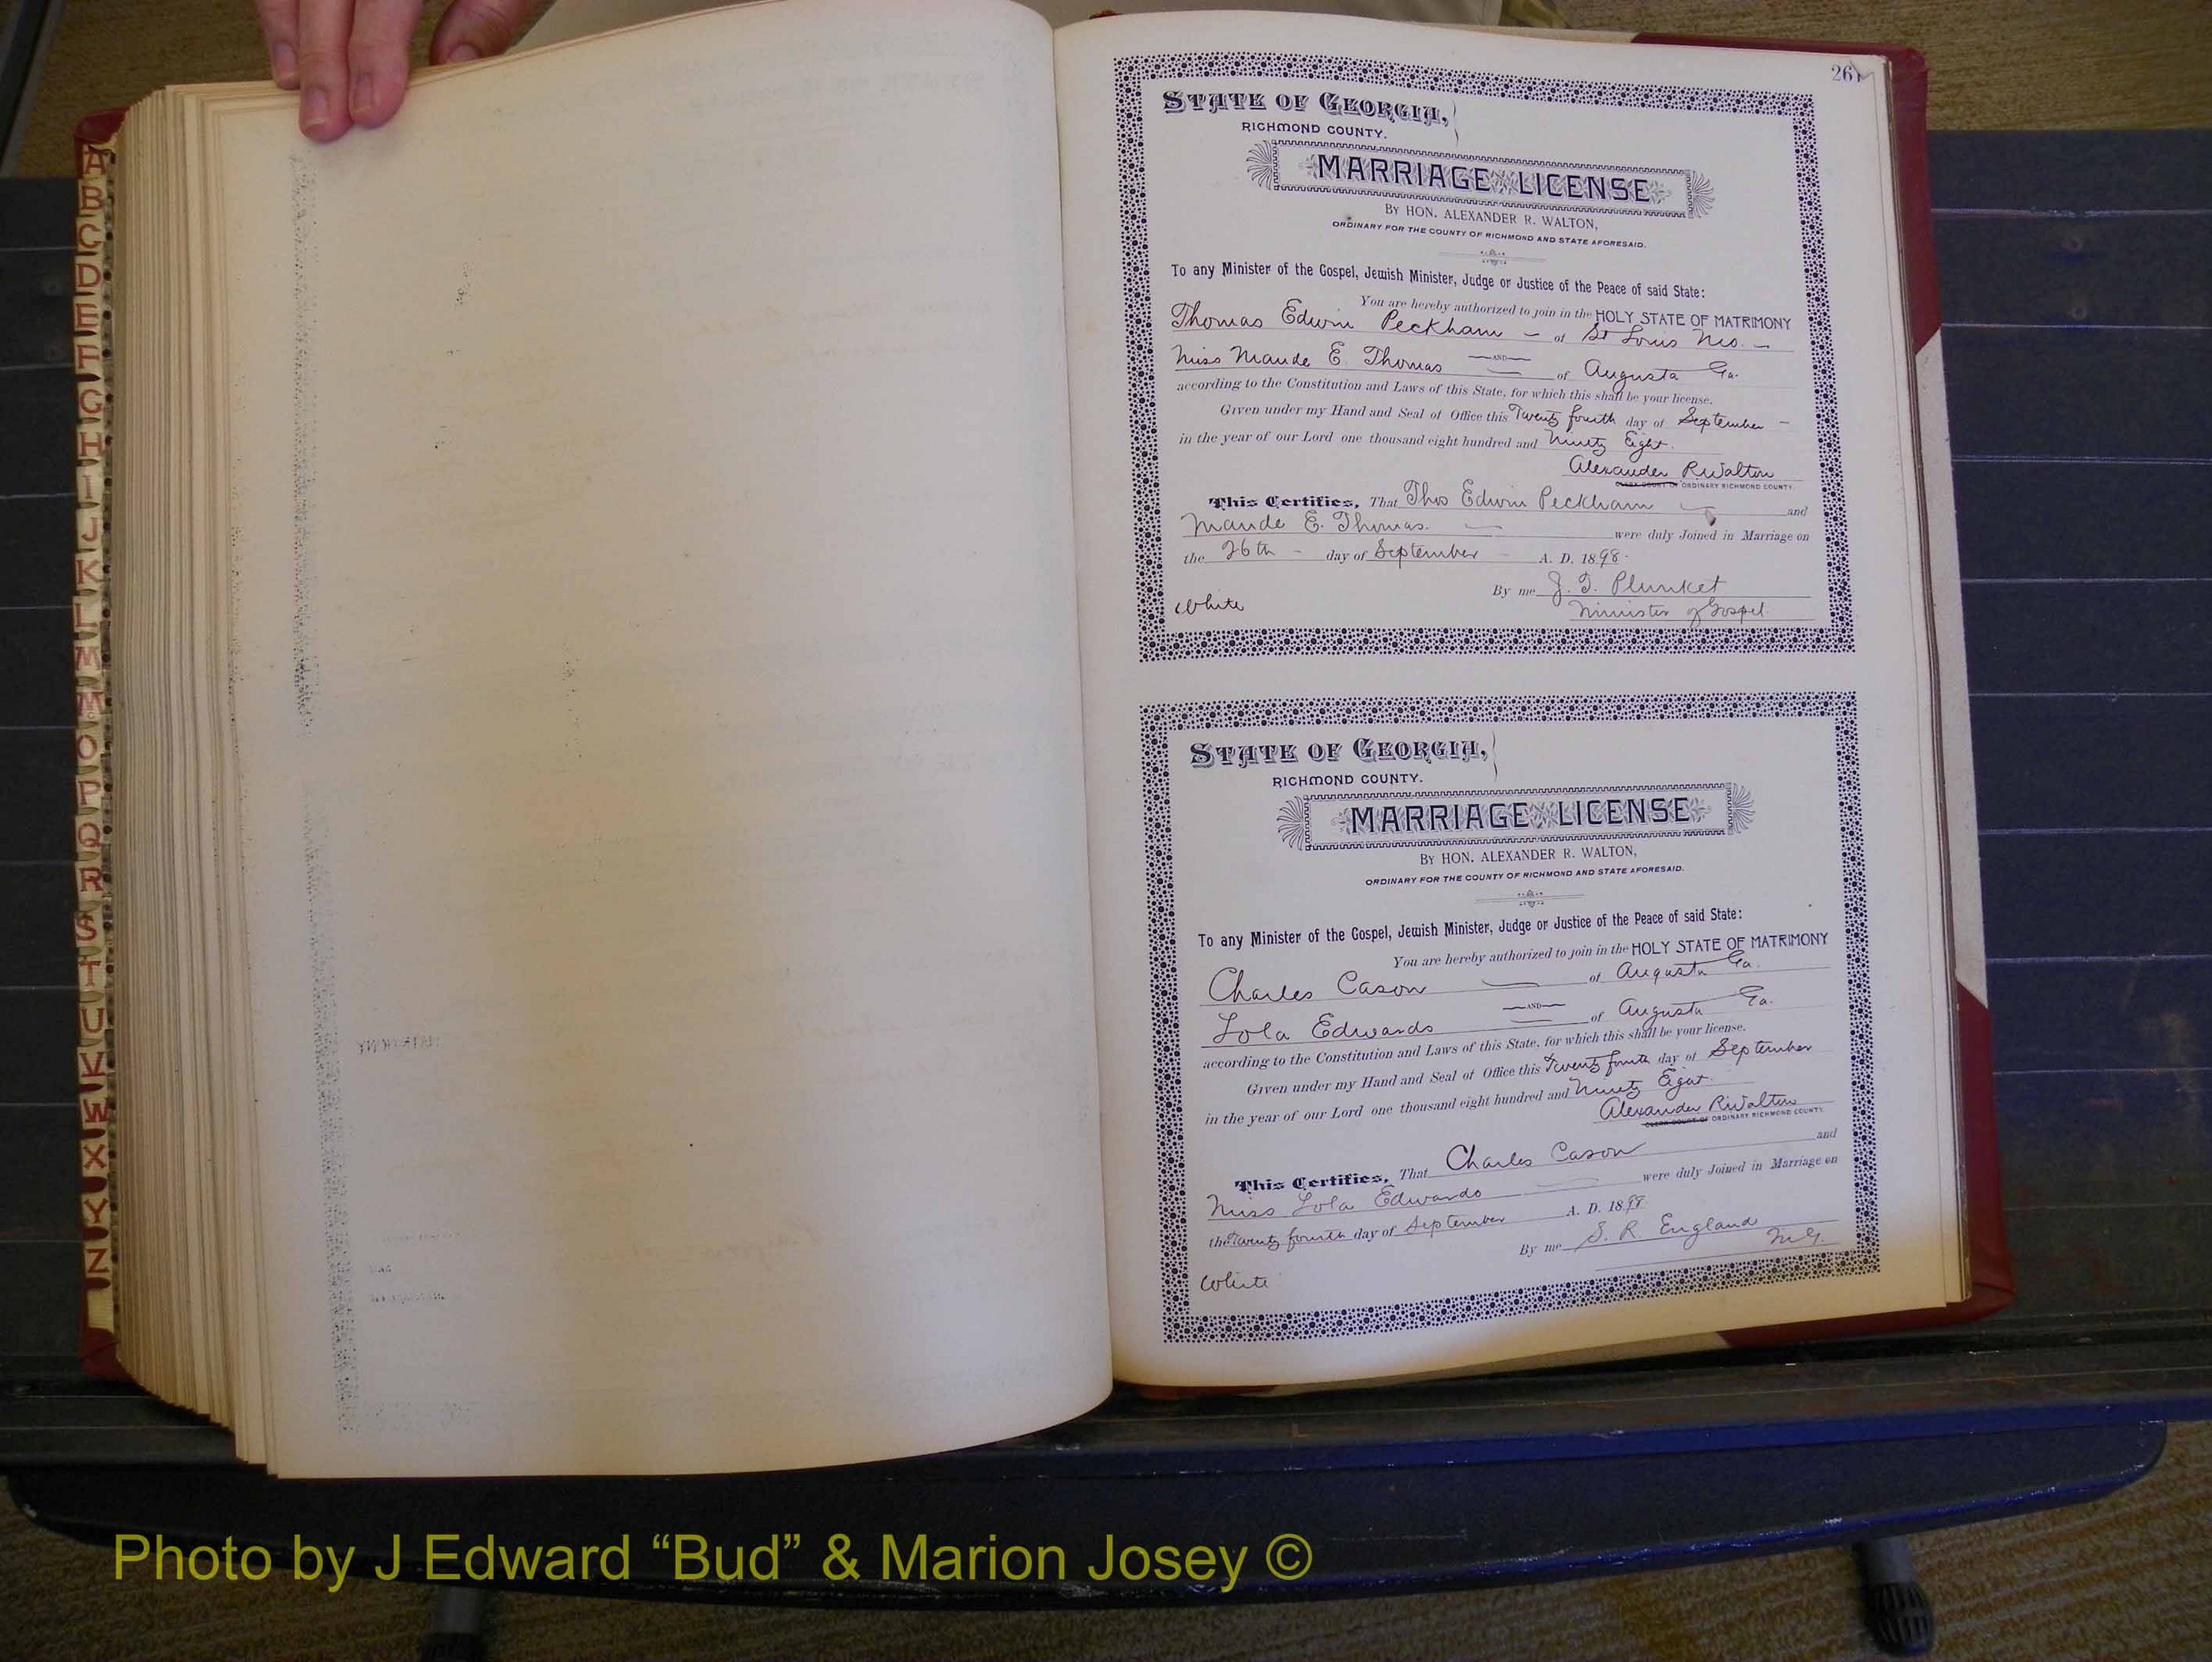 A
B
C
D
E
F
G
H
I
J
K
L
M
Mc
O
P
Q
R
S
T
U
V
W
X
Y
Z
261
STATE OF GEORGIA,
RICHMOND COUNTY.
MARRIAGE LICENSE
BY HON. ALEXANDER R. WALTON,
ORDINARY FOR THE COUNTY OF RICHMOND AND STATE AFORESAID.
To any Minister of the Gospel, Jewish Minister, Judge or Justice of the Peace of said State:
You are hereby authorized to join in the HOLY STATE OF MATRIMONY
Thomas Edwin Peckham – of St Louis Mo. –
AND
Miss Maude E. Thomas of Augusta Ga.
according to the Constitution and Laws of this State, for which this shall be your license.
Given under my Hand and Seal of Office this Twenty fourth day of September –
in the year of our Lord one thousand eight hundred and Ninety Eight.
Alexander R Walton
CLERK COURT OF ORDINARY RICHMOND COUNTY.
This Certifies, That Thos Edwin Peckham and
Maude E. Thomas. were duly Joined in Marriage on
the 26th – day of September – A. D. 1898.
By me J. T. Plunket
White
Minister of Gospel.
STATE OF GEORGIA,
RICHMOND COUNTY.
MARRIAGE LICENSE
BY HON. ALEXANDER R. WALTON,
ORDINARY FOR THE COUNTY OF RICHMOND AND STATE AFORESAID.
To any Minister of the Gospel, Jewish Minister, Judge or Justice of the Peace of said State:
You are hereby authorized to join in the HOLY STATE OF MATRIMONY
Charles Cason of Augusta Ga.
AND
Lola Edwards of Augusta Ga.
according to the Constitution and Laws of this State, for which this shall be your license.
Given under my Hand and Seal of Office this Twenty fourth day of September
in the year of our Lord one thousand eight hundred and Ninety Eight.
Alexander R Walton
CLERK COURT OF ORDINARY RICHMOND COUNTY.
This Certifies, That Charles Cason and
Miss Lola Edwards were duly Joined in Marriage on
the Twenty fourth day of September A. D. 1898
By me S. R. England
M.G.
White
Photo by J Edward “Bud” & Marion Josey ©